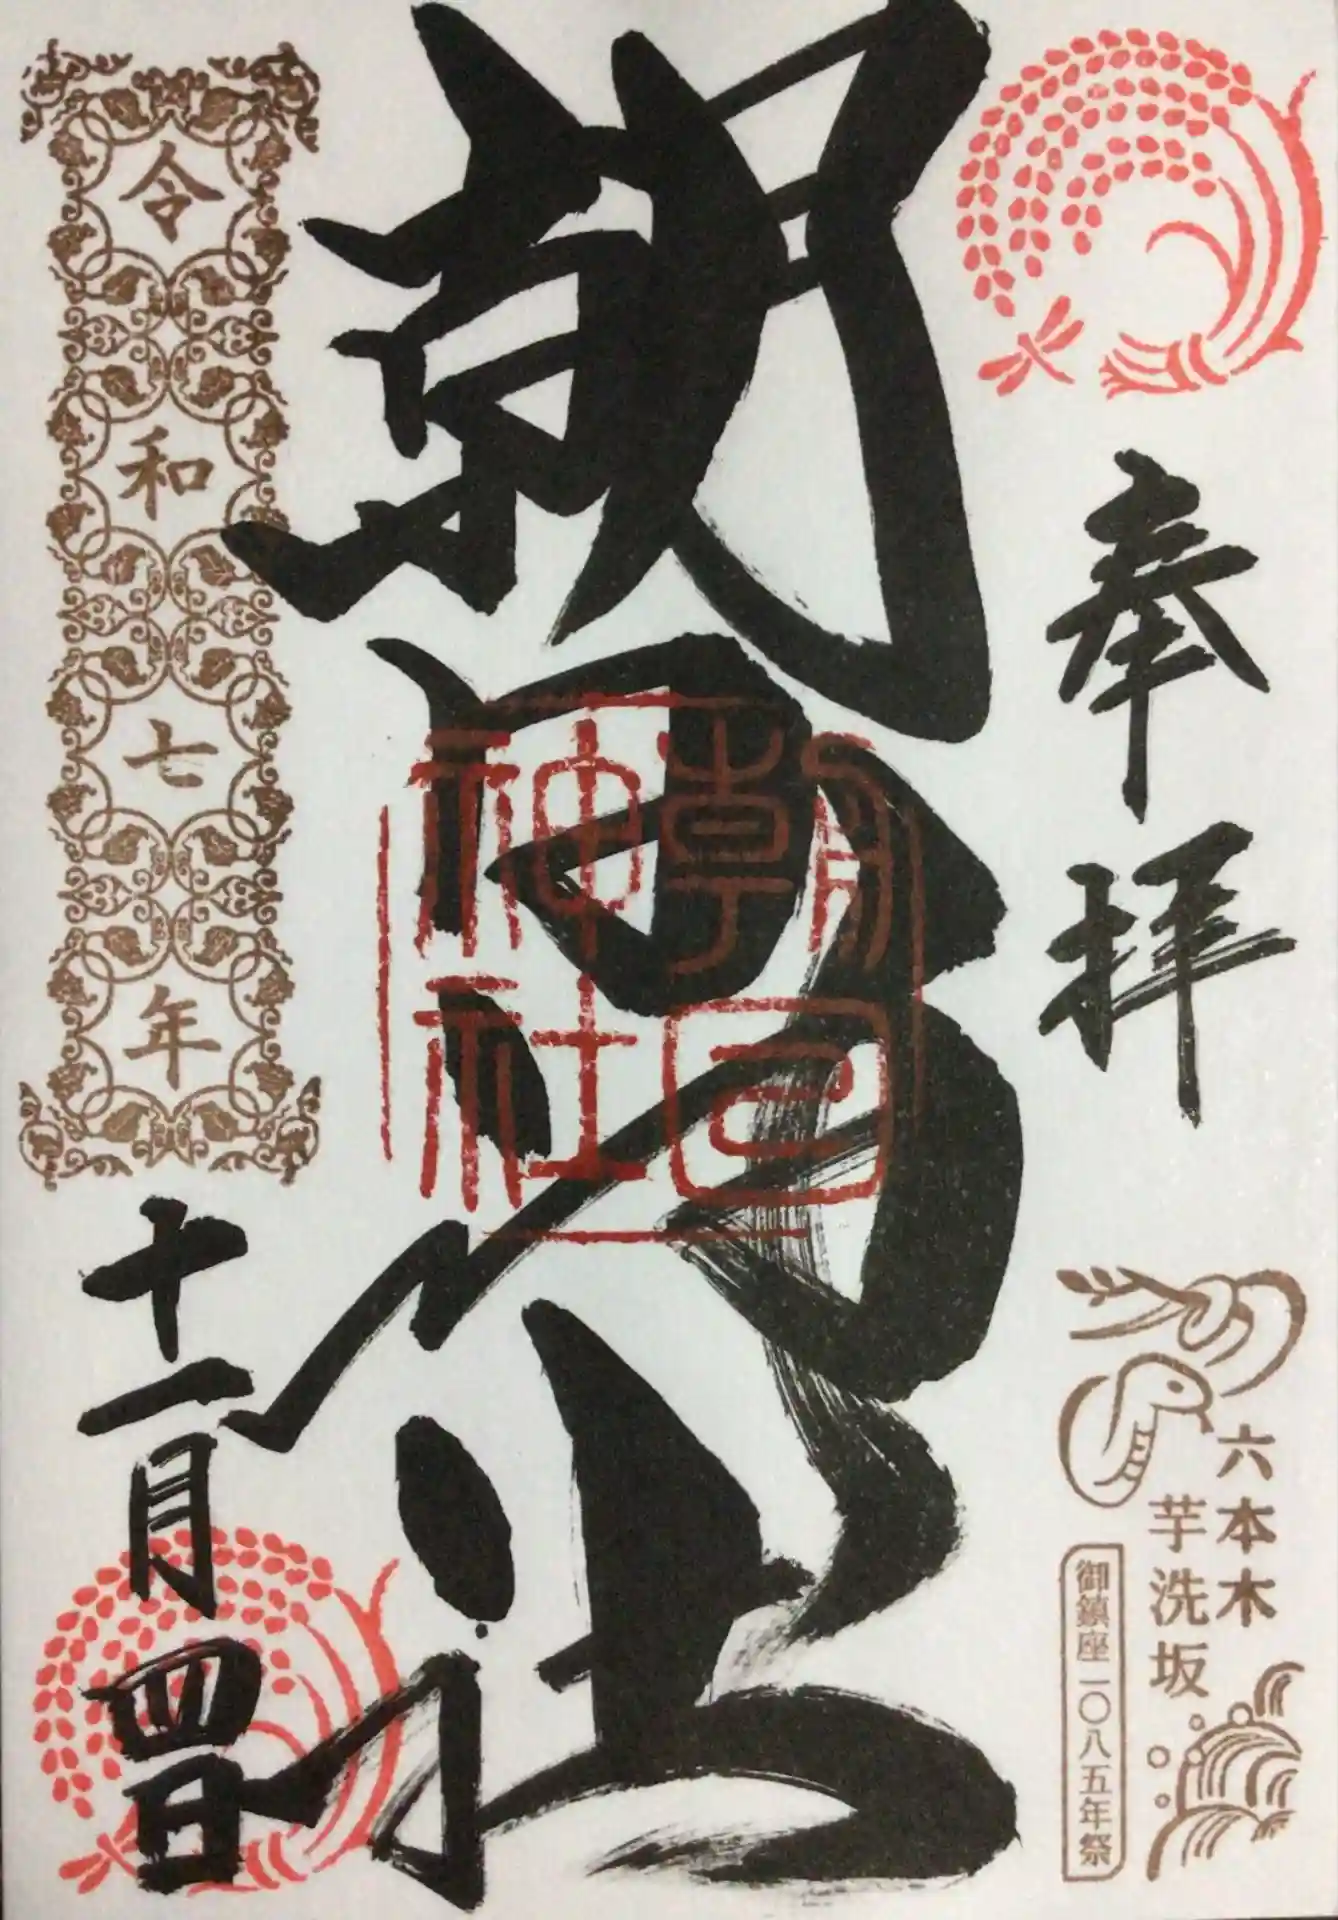 奉拝
六本木
芋洗坂
御鎮座一〇八五年祭
朝日神社
朝日
神社
令和七年
十一月四日